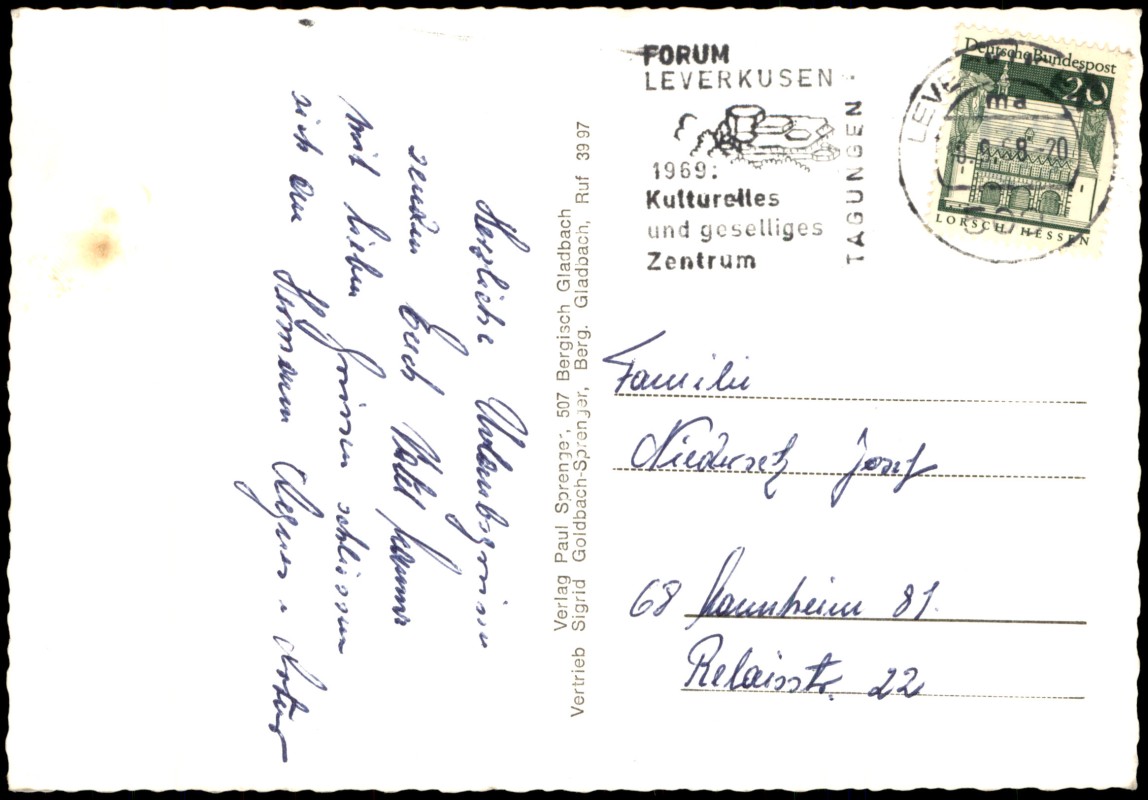 Herzliche Urlaubsgrüsse
senden Euch
mit lieben Grüssen schliessen
sich an Hermann Agnes u.
Verlag Paul Sprenger, 507 Bergisch Gladbach
Vertrieb Sigrid Goldbach-Sprenger, Berg. Gladbach, Ruf 3997
FORUM
LEVERKUSEN
1969:
Kulturelles
und geselliges
Zentrum
TAGUNGEN
Deutsche Bundespost
20
LORSCH/HESSEN
LEVE
ma
8.68-20
Familie
Josef
68 Mannheim 81
Relaisstr. 22